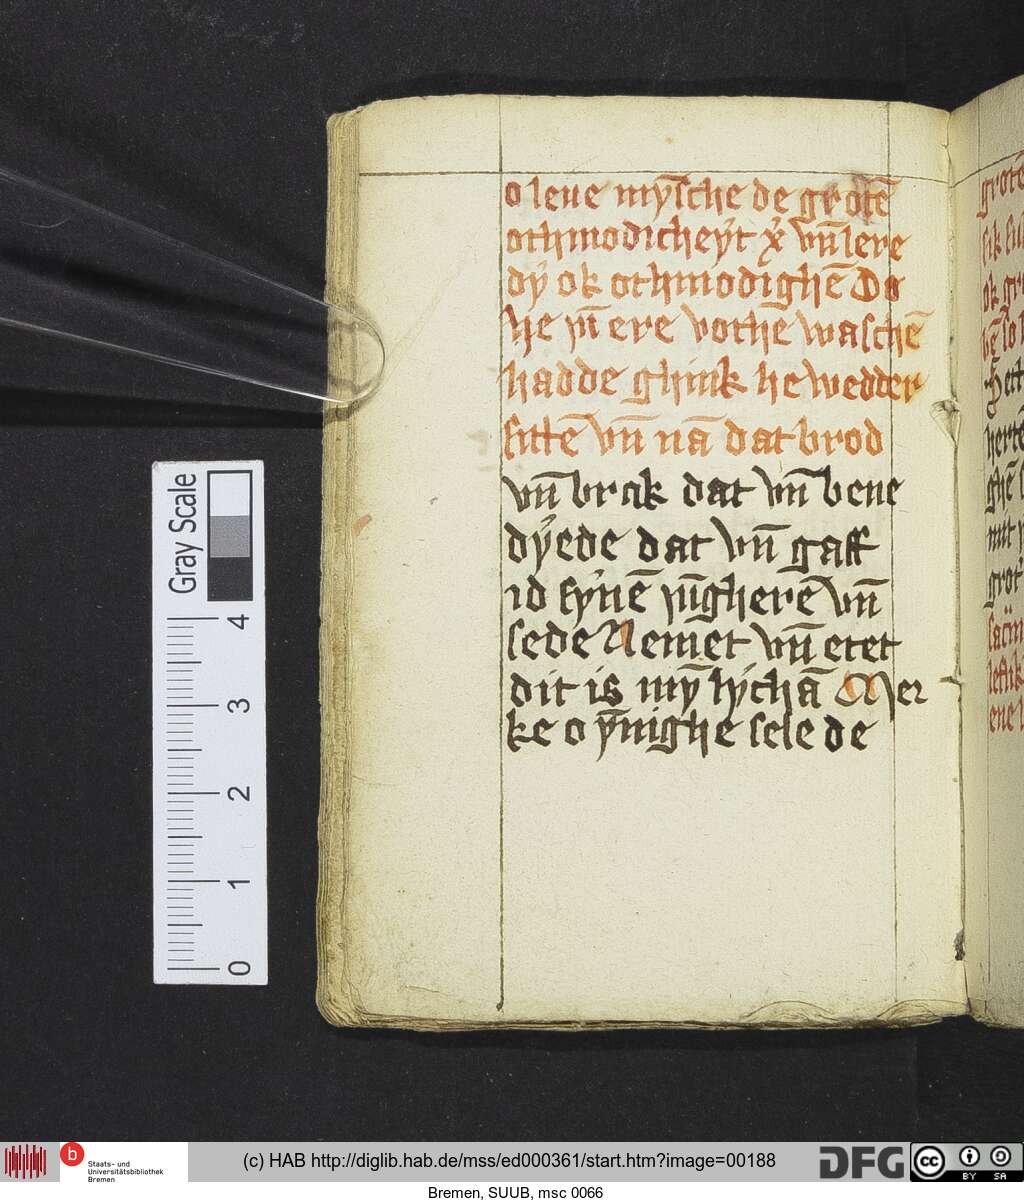 o leue mȳsche de grotē
othmodicheyt xp̄i vn̄ lere
dy ok othmodighē Do
he yn̄ ere vothē waschē
hadde ghink he wedder
sittē vn̄ nā dat brod
vn̄ brak dat vn̄ bene
dyede dat vn̄ gaff
id synē yūgherē vn̄
sede Nemet vn̄ etet
dit is mȳ lychā Mer
ke o ȳnighe sele de
Gray Scale
4
3
2
1
0
Staats- und
Universitätsbibliothek
Bremen
(c) HAB http://diglib.hab.de/mss/ed000361/start.htm?image=00188
DFG
cc BY SA
Bremen, SUUB, msc 0066